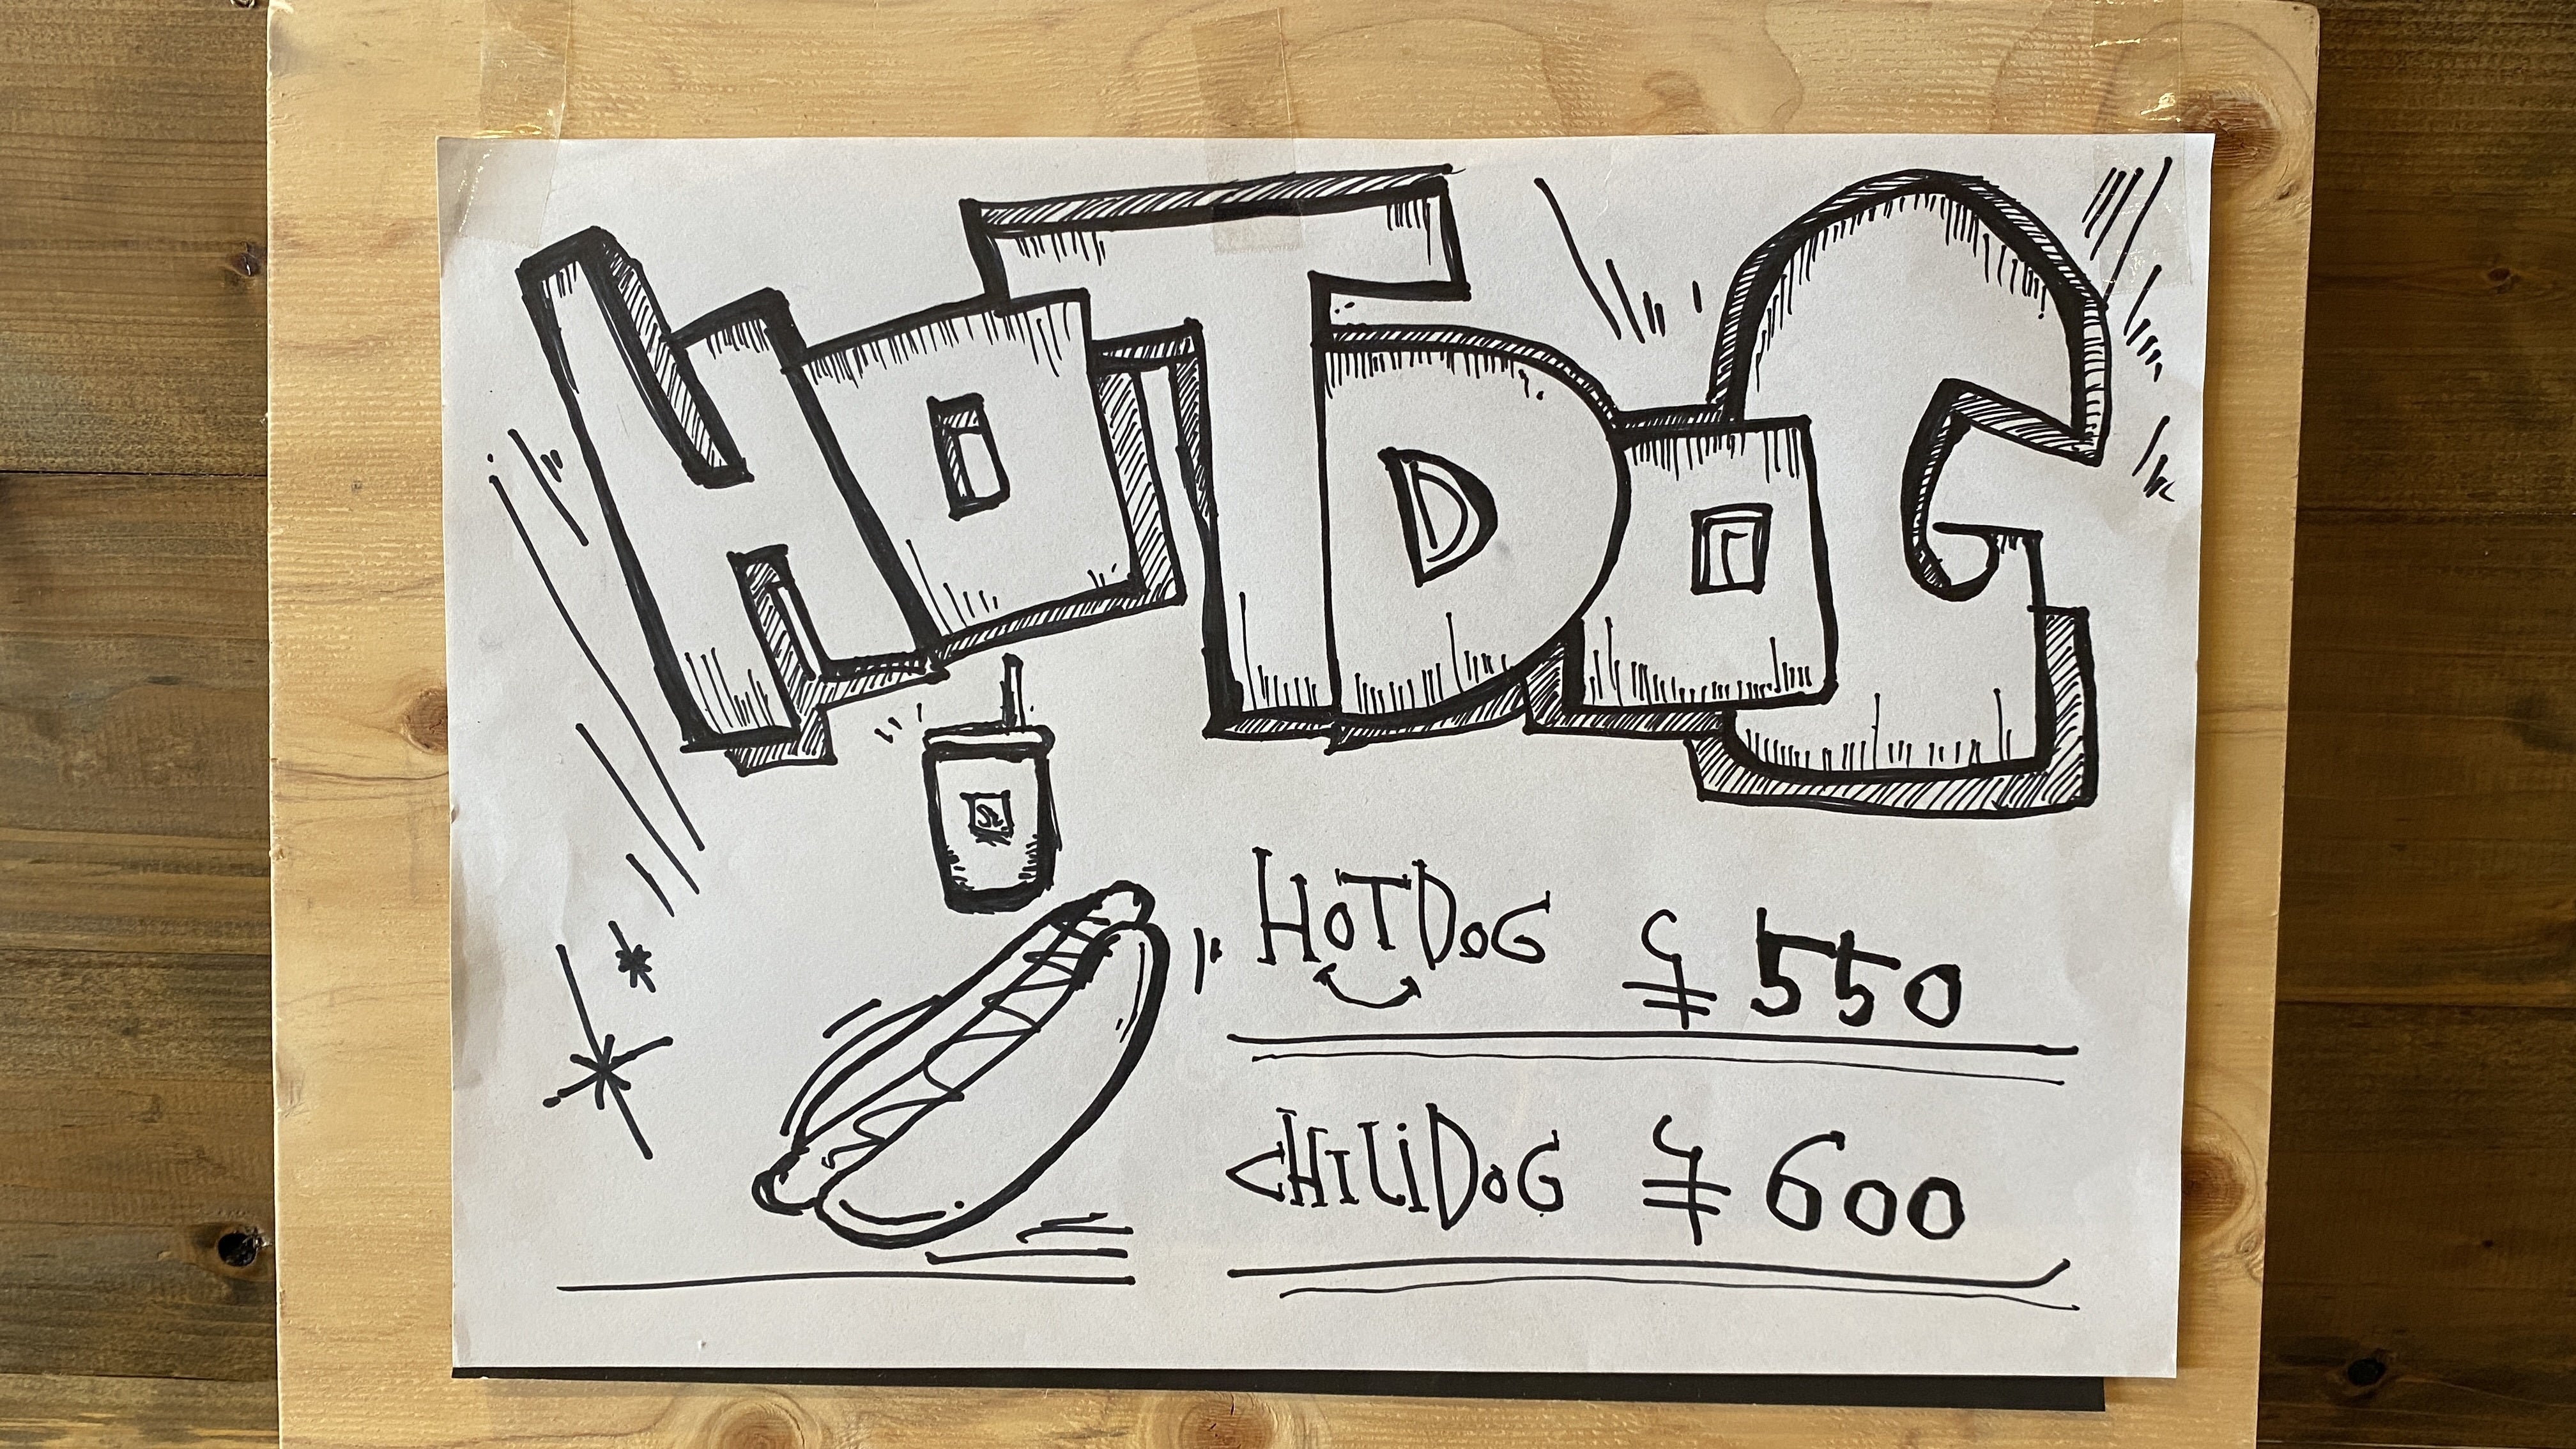 HOTDOG
HOTDOG ¥550
CHILiDOG ¥600